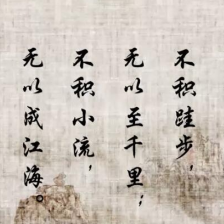 不积跬步，
无以至千里；
不积小流，
无以成江海。